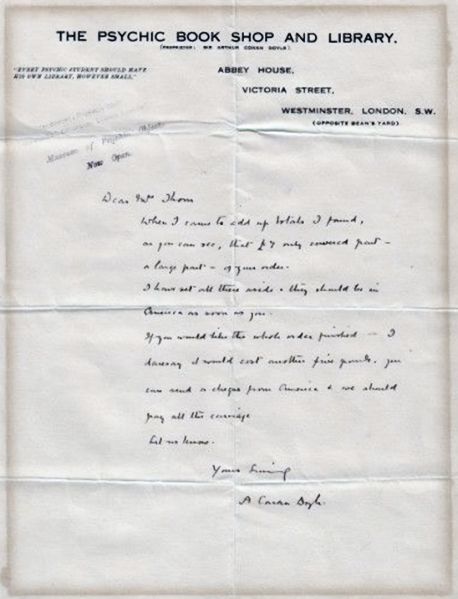 THE PSYCHIC BOOK SHOP AND LIBRARY.
(PROPRIETOR: SIR ARTHUR CONAN DOYLE).
"EVERY PSYCHIC STUDENT SHOULD HAVE
HIS OWN LIBRARY, HOWEVER SMALL."
ABBEY HOUSE,
VICTORIA STREET,
WESTMINSTER, LONDON, S.W.
(OPPOSITE DEAN'S YARD).
Museum of Psychic Objects
Now Open
Dear Mrs Thom
When I came to add up totals I found,
as you can see, that £7 only covered part –
a large part – of your order.
I have set all these aside & they should be in
America as soon as you.
If you would like the whole order finished – I
daresay it would cost another five pounds, you
can send a cheque from America & we should
pay all the carriage
Let us know.
Yours sincerely
A Conan Doyle.